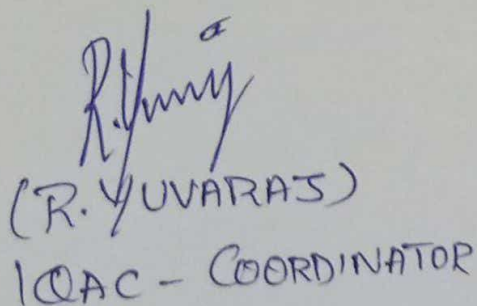 R. Yuvaraj
(R. YUVARAJ)
IQAC - COORDINATOR